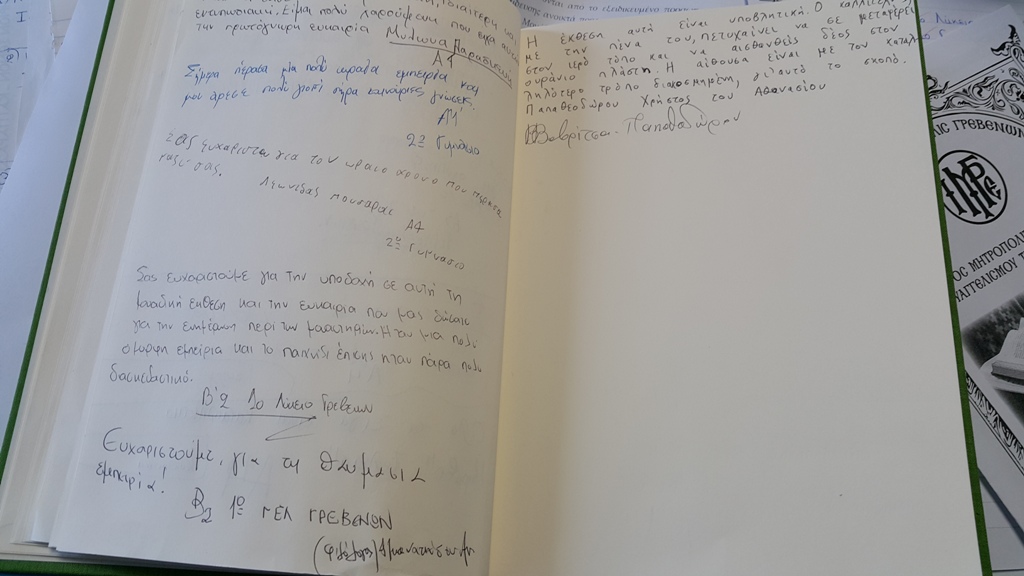 εντυπωσιακή. Είμαι πολύ χαρούμενη που είχα αυτή
την πρωτόγνωρη ευκαιρία Μυλωνα Παρασκευή
Α4
Σήμερα πέρασα μία πολύ ωραία εμπειρία και
μου άρεσε πολύ γιατί πήρα καινούριες γνώσεις.
Α4
2ο Γυμνάσιο
Σας ευχαριστώ για τον ωραίο χρόνο που πέρασα
μαζί σας.
Λεωνίδας
Α4
2ο Γυμνάσιο
Σας ευχαριστούμε για την υποδοχή σε αυτή τη
έκθεση και την ευκαιρία που μας δώσατε
για την ενημέρωση περί των μυστηρίων. Ήταν μια πολύ
όμορφη εμπειρία και το παιχνίδι επίσης ήταν πάρα πολύ
διασκεδαστικό.
Β'2 1ο Λύκειο Γρεβενών
Ευχαριστούμε, για τη θαυμάσια
εμπειρία!
Β2 1ο ΓΕΛ ΓΡΕΒΕΝΩΝ
Η έκθεση αυτή είναι υποβλητική. Ο καλλιτέχνης
με την πένα του, πετυχαίνει να σε μεταφέρει
στον ιερό τόπο και να αισθανθείς δέος στον
ουράνιο πλάστη. Η αίθουσα είναι με τον κατάλ
ληλότερο τρόπο διακοσμημένη, γι' αυτό το σκοπό.
Παπαθεοδώρου Χρήστος του Αθανασίου
Παπαθεοδώρου
ΙΣ ΓΡΕΒΕΝΩΝ
ΟΣ ΜΗΤΡΟΠΟΛΙ
ΥΑΓΓΕΛΙΣΜΟΥ Τ